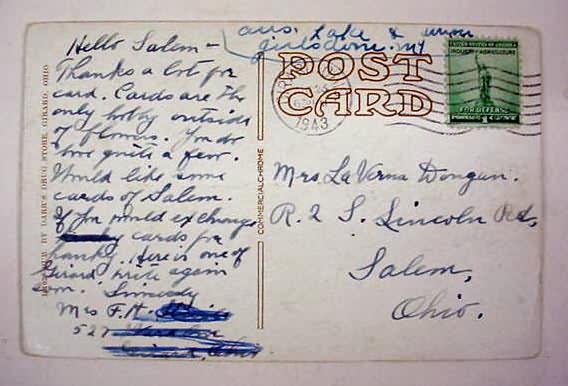 Hello Salem -
Thanks a lot for
card. Cards are the
only hobby outside
of flowers. You do
have quite a few.
Would like some
cards of Salem.
If you would exchange
cards for
hanky. Here is one of
Girard. write again
son. Sincerely
Mrs F. H.
527
Girard, Ohio
ans. Lake &
girls dorm.
POST
CARD
1943
UNITED STATES OF AMERICA
INDUSTRY AGRICULTURE
FOR DEFENSE
1 CENT
COMMERCIALCHROME
DRUG STORE, GIRARD, OHIO
Mrs. LaVerna Dongan.
R. 2 S. Lincoln Rd,
Salem,
Ohio.